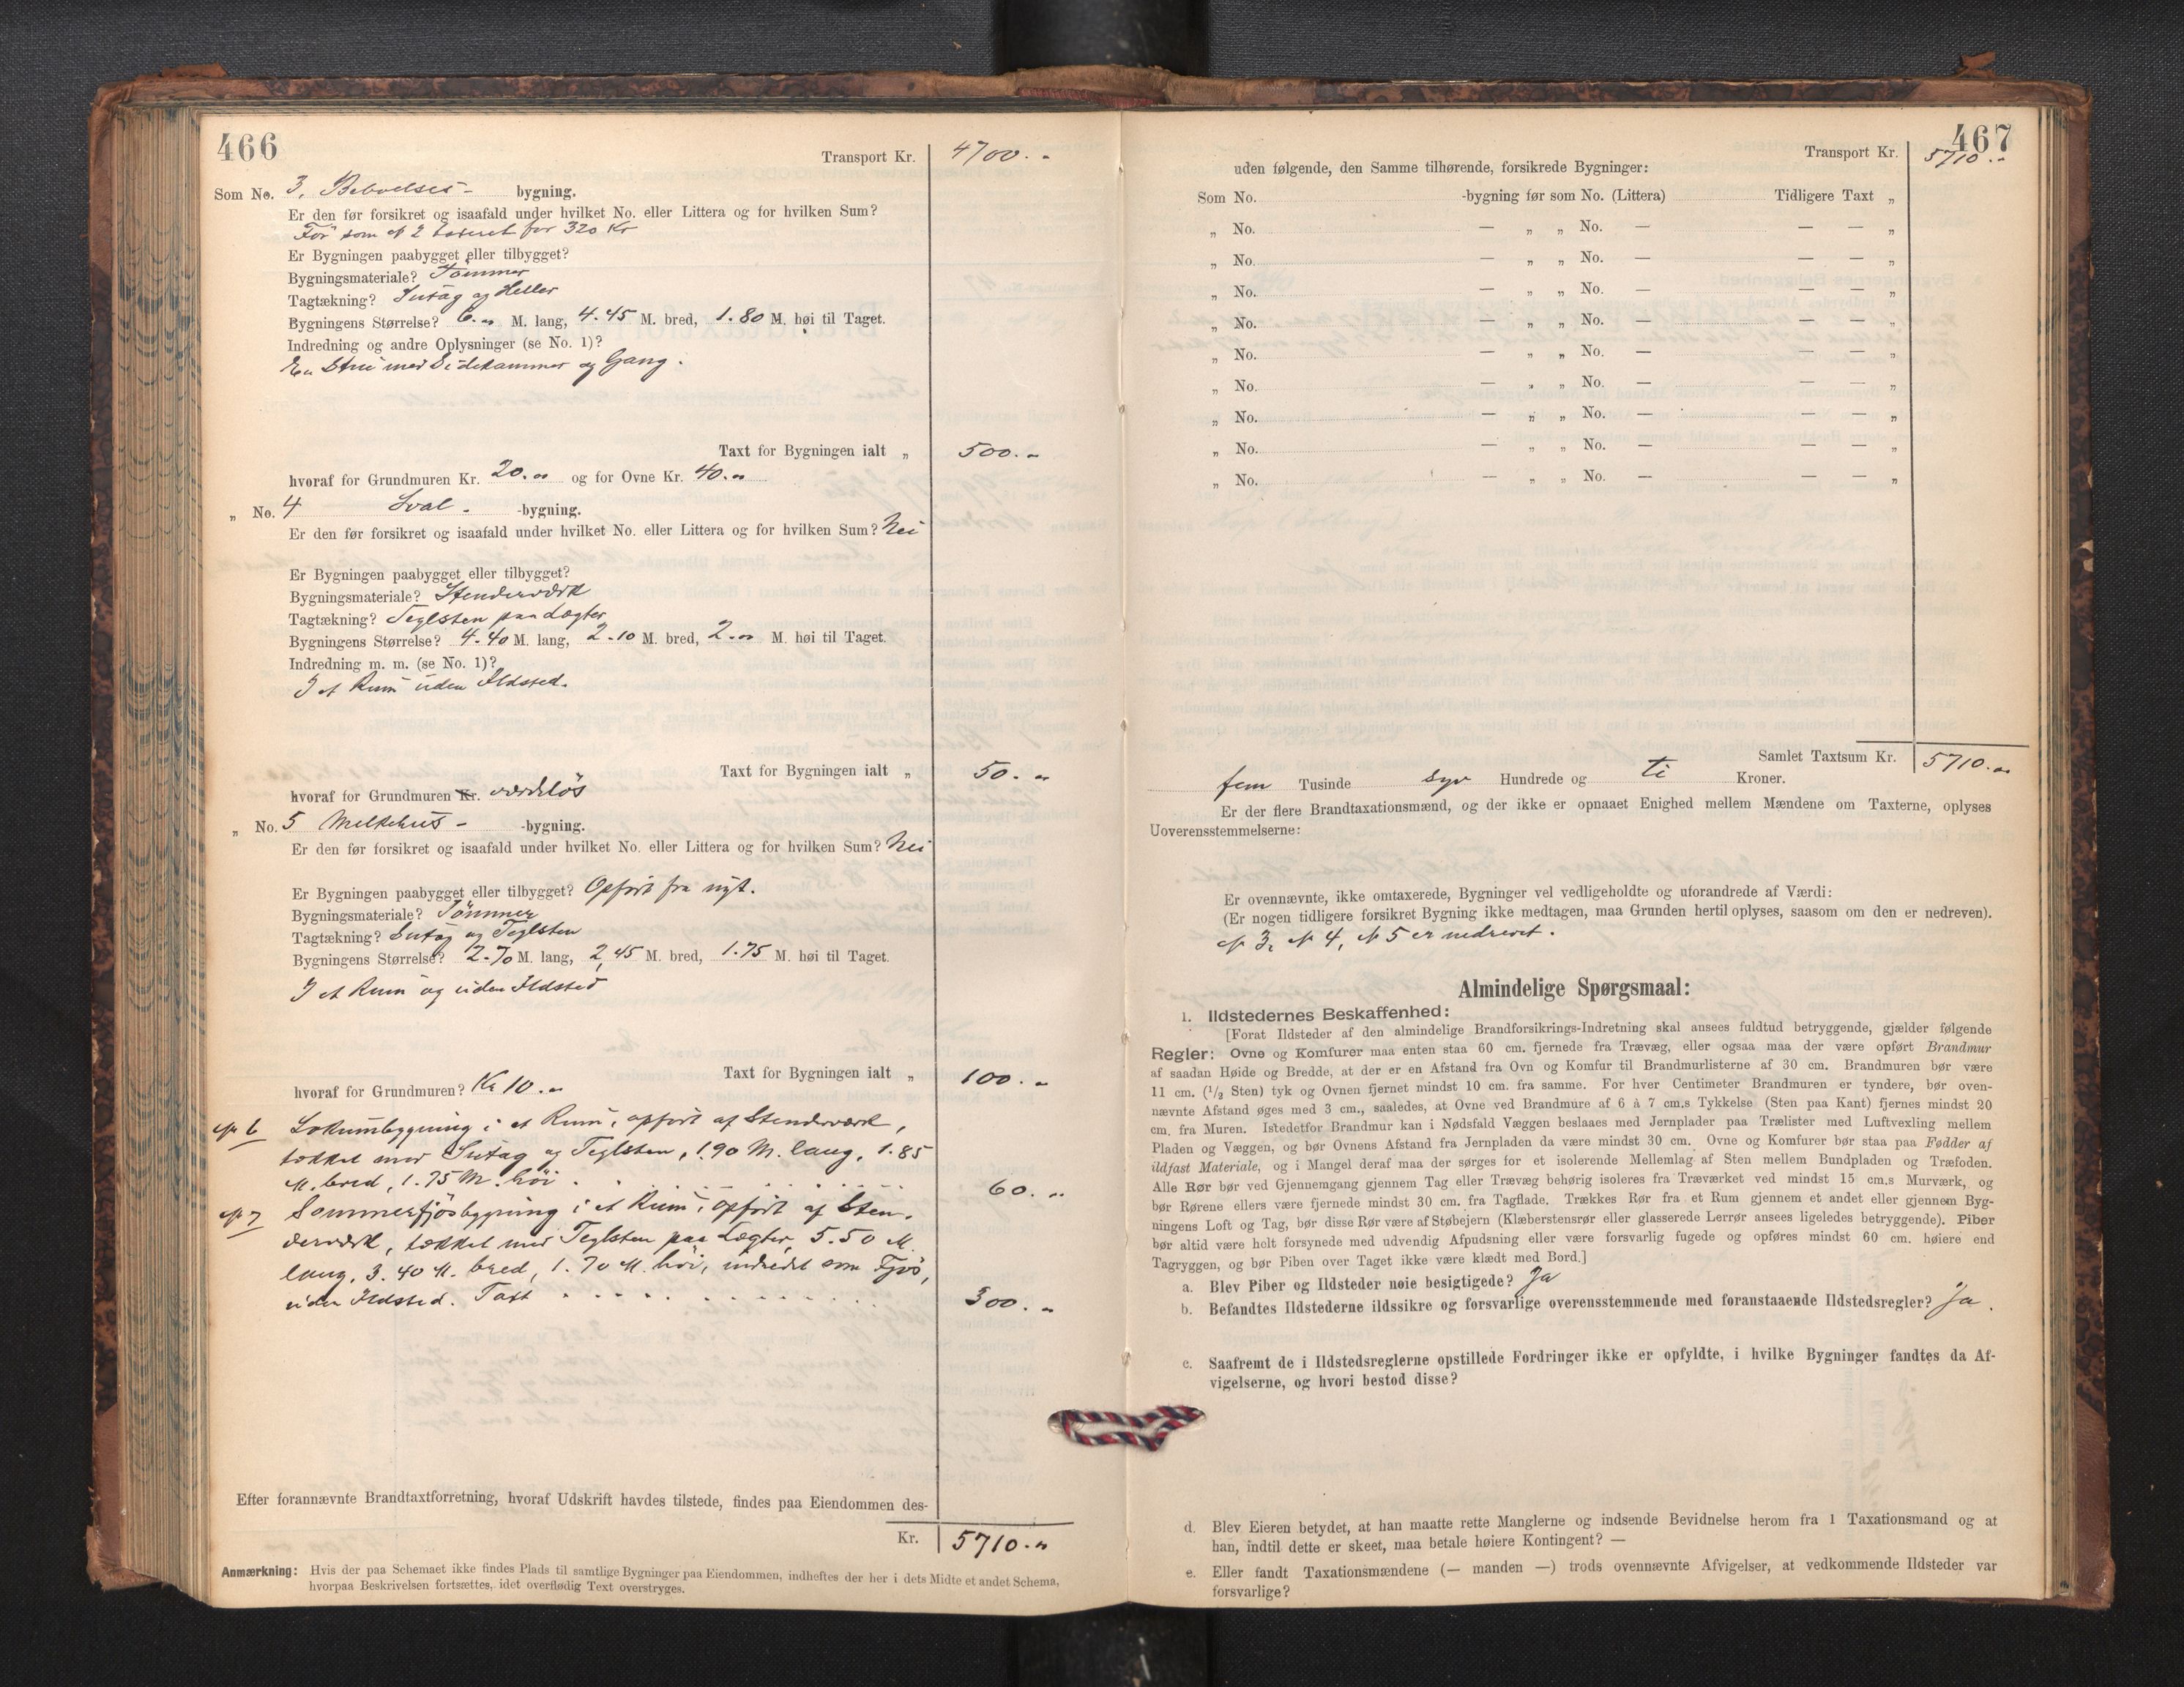 466
Transport Kr. 4700.-
Som No. 3, Beboelses- bygning.
Er den før forsikret og isaafald under hvilket No. eller Littera og for hvilken Sum?
Før som No 2 taxeret for 320 Kr
Er Bygningen paabygget eller tilbygget?
Bygningsmateriale? Tømmer
Tagtækning? Sutag og Heller
Bygningens Størrelse? 6.- M. lang, 4.45 M. bred, 1.80 M. høi til Taget.
Indredning og andre Oplysninger (se No. 1)?
En Stue med Sidekammer og Gang.
Taxt for Bygningen ialt „ 500.-
hvoraf for Grundmuren Kr. 20.- og for Ovne Kr. 40.-
„ No. 4 Sval- -bygning.
Er den før forsikret og isaafald under hvilket No. eller Littera og for hvilken Sum? Nei
Er Bygningen paabygget eller tilbygget?
Bygningsmateriale? Stenderværk
Tagtækning? Teglsten paa Lægter
Bygningens Størrelse? 4.40 M. lang, 2.10 M. bred, 2.- M. høi til Taget.
Indredning m. m. (se No. 1)?
I et Rum uden Ildsted.
Taxt for Bygningen ialt „ 50.-
hvoraf for Grundmuren Kr. værdiløs
„ No. 5 Melkehus- -bygning.
Er den før forsikret og isaafald under hvilket No. eller Littera og for hvilken Sum? Nei
Er Bygningen paabygget eller tilbygget? Opført fra nyt.
Bygningsmateriale? Tømmer
Tagtækning? Sutag og Teglsten
Bygningens Størrelse? 2.70 M. lang, 2,45 M. bred, 1.75 M. høi til Taget.
I et Rum og uden Ildsted
Taxt for Bygningen ialt „ 100.-
hvoraf for Grundmuren? Kr 10.-
No 6 Lokumbygning i et Rum, opført af Stenderværk,
tækket med Sutag og Teglsten, 1.90 M. lang, 1.85
M. bred, 1.75 M. høi . . . . . . . . 60.-
No 7 Sommerfjösbygning i et Rum, opført af Sten-
derværk, tækket med Teglsten paa Lægter, 5.50 M.
lang, 3.40 M. bred, 1.70 M. høi, indredet som Fjös,
uden Ildsted. Taxt . . . . . . . . 300.-
Efter forannævnte Brandtaxtforretning, hvoraf Udskrift havdes tilstede, findes paa Eiendommen des-
Kr. 5710.-
Anmærkning: Hvis der paa Schemaet ikke findes Plads til samtlige Bygninger paa Eiendommen, indheftes der her i dets Midte et andet Schema,
hvorpaa Beskrivelsen fortsættes, idet overflødig Text overstryges.
467
Transport Kr. 5710.-
uden følgende, den Samme tilhørende, forsikrede Bygninger:
Som No. -bygning før som No. (Littera) Tidligere Taxt „
„ No. — „ „ No. — — — „
„ No. — „ „ No. — — — „
„ No. — „ „ No. — — — „
„ No. — „ „ No. — — — „
„ No. — „ „ No. — — — „
„ No. — „ „ No. — — — „
„ No. — „ „ No. — — — „
„ No. — „ „ No. — — — „
„ No. — „ „ No. — — — „
Samlet Taxtsum Kr. 5710.-
fem Tusinde syv Hundrede og ti Kroner.
Er der flere Brandtaxationsmænd, og der ikke er opnaaet Enighed mellem Mændene om Taxterne, oplyses
Uoverensstemmelserne:
Er ovennævnte, ikke omtaxerede, Bygninger vel vedligeholdte og uforandrede af Værdi:
(Er nogen tidligere forsikret Bygning ikke medtagen, maa Grunden hertil oplyses, saasom om den er nedreven).
No 3, No 4, No 5 er nedrevet.
Almindelige Spørgsmaal:
1. Ildstedernes Beskaffenhed:
[Forat Ildsteder af den almindelige Brandforsikrings-Indretning skal ansees fuldtud betryggende, gjælder følgende
Regler: Ovne og Komfurer maa enten staa 60 cm. fjernede fra Trævæg, eller ogsaa maa der være opført Brandmur
af saadan Høide og Bredde, at der er en Afstand fra Ovn og Komfur til Brandmurlisterne af 30 cm. Brandmuren bør være
11 cm. (1/2 Sten) tyk og Ovnen fjernet mindst 10 cm. fra samme. For hver Centimeter Brandmuren er tyndere, bør oven-
nævnte Afstand øges med 3 cm., saaledes, at Ovne ved Brandmure af 6 à 7 cm.s Tykkelse (Sten paa Kant) fjernes mindst 20
cm. fra Muren. Istedetfor Brandmur kan i Nødsfald Væggen beslaaes med Jernplader paa Trælister med Luftvexling mellem
Pladen og Væggen, og bør Ovnens Afstand fra Jernpladen da være mindst 30 cm. Ovne og Komfurer bør staa paa Fødder af
ildfast Materiale, og i Mangel deraf maa der sørges for et isolerende Mellemlag af Sten mellem Bundpladen og Træfoden.
Alle Rør bør ved Gjennemgang gjennem Tag eller Trævæg behørig isoleres fra Træværket ved mindst 15 cm.s Murværk, og
bør Rørene ellers være fjernede mindst 30 cm. fra Tagflade. Trækkes Rør fra et Rum gjennem et andet eller gjennem Byg-
ningens Loft og Tag, bør disse Rør være af Støbejern (Klæberstensrør eller glasserede Lerrør ansees ligeledes betryggende). Piber
bør altid være helt forsynede med udvendig Afpudsning eller være forsvarlig fugede og opføres mindst 60 cm. høiere end
Tagryggen, og bør Piben over Taget ikke være klædt med Bord.]
a. Blev Piber og Ildsteder nøie besigtigede? Ja
b. Befandtes Ildstederne ildssikre og forsvarlige overensstemmende med foranstaaende Ildstedsregler? Ja.
c. Saafremt de i Ildstedsreglerne opstillede Fordringer ikke er opfyldte, i hvilke Bygninger fandtes da Af-
vigelserne, og hvori bestod disse?
d. Blev Eieren betydet, at han maatte rette Manglerne og indsende Bevidnelse herom fra 1 Taxationsmand og at
han, indtil dette er skeet, maa betale høiere Kontingent? —
e. Eller fandt Taxationsmændene (— manden —) trods ovennævnte Afvigelser, at vedkommende Ildsteder var
forsvarlige?